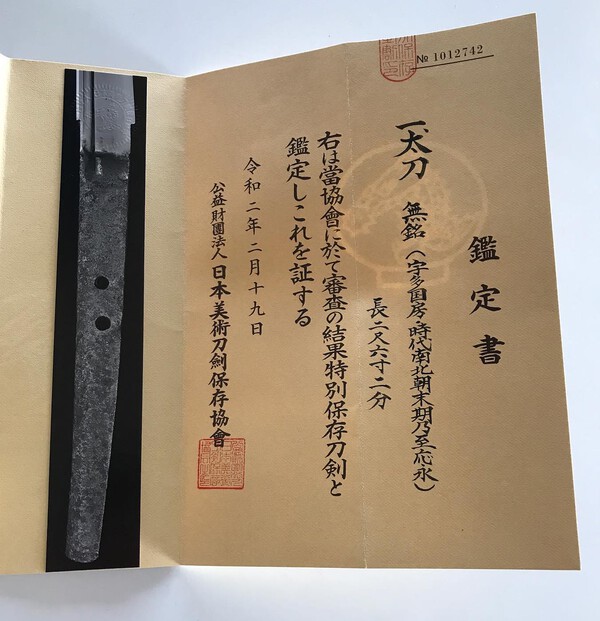 № 1012742
鑑定書
一、太刀 無銘（宇多国房・時代南北朝末期乃至応永）
長二尺六寸二分
右は當協會に於て審査の結果特別保存刀剣と
鑑定しこれを証する
令和二年二月十九日
公益財團法人日本美術刀劍保存協會